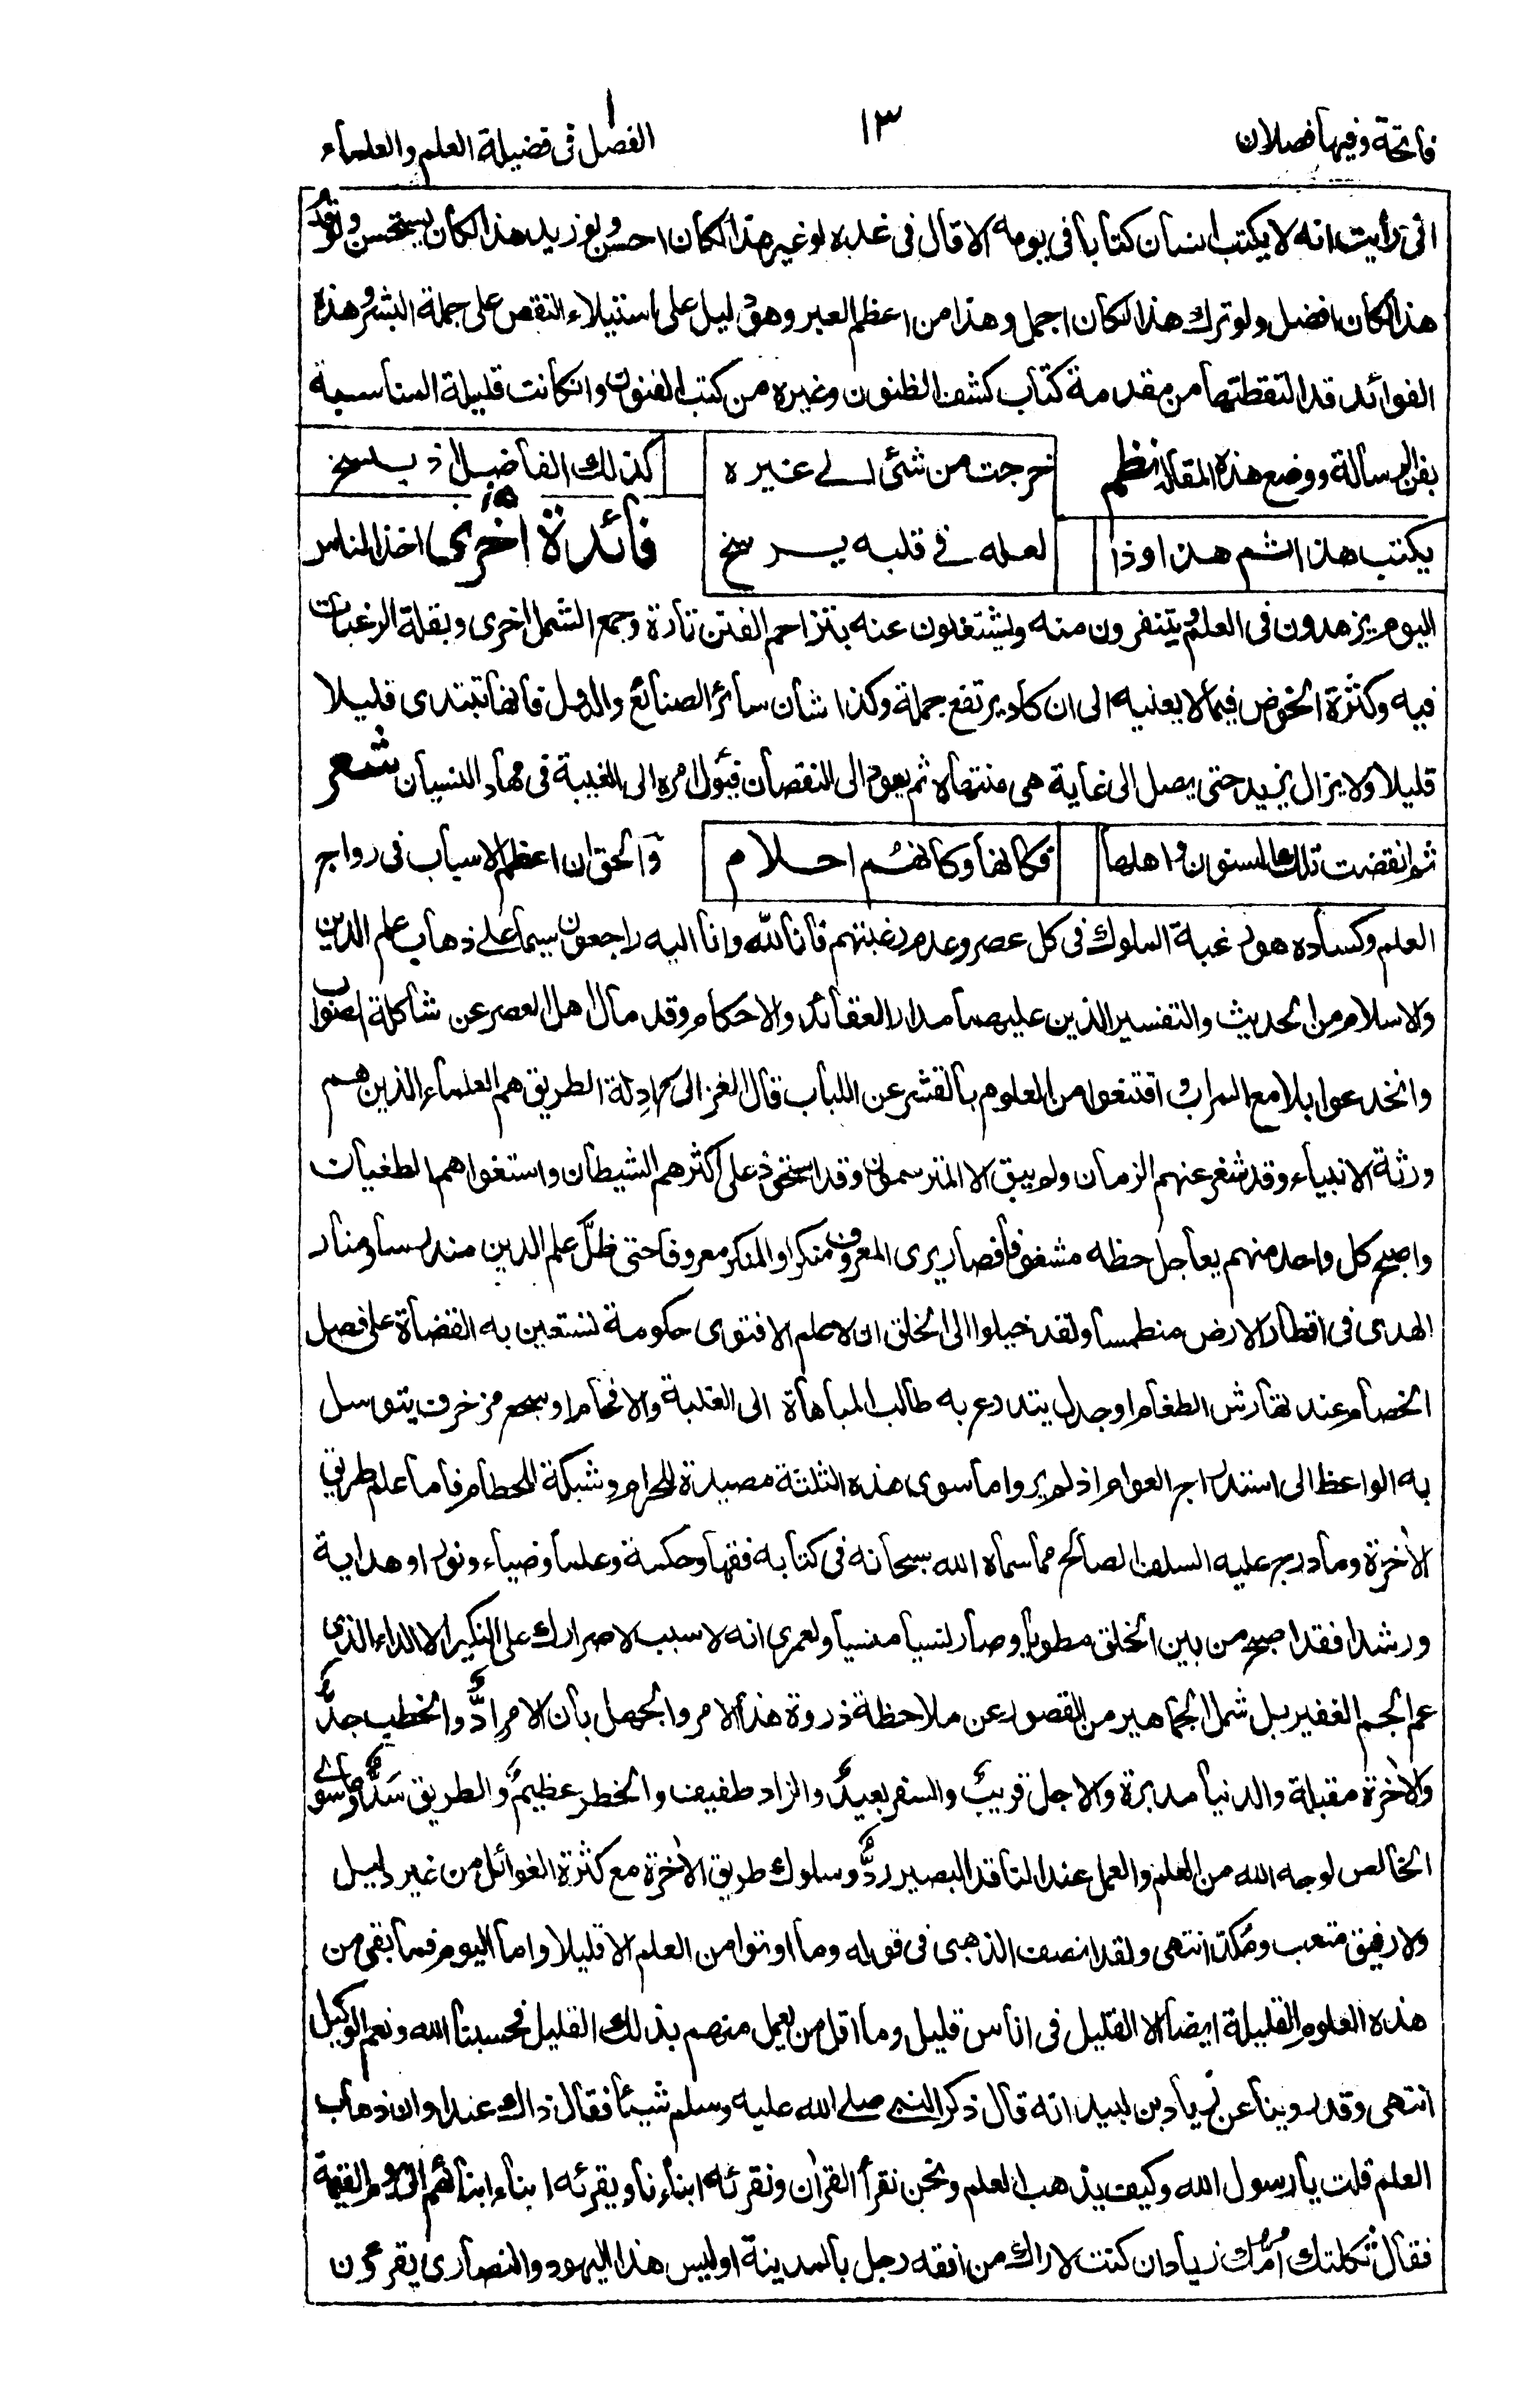 فاتحة وفيها فصلان
١٣
الفصل ١ فى فضيلة العلم والعلماء
انى رأيت انه لا يكتب انسان كتابا فى يومه الا قال فى غده لو غير هذا لكان احسن ولو زيد هذا لكان يستحسن ولو قدم
هذا لكان افضل ولو ترك هذا لكان اجمل وهذا من اعظم العبر وهو دليل على استيلاء النقص على جملة البشر وهذه
الفوائد قد التقطتها من مقدمة كتاب كشف الظنون وغيره من كتب الفنون وان كانت قليلة المناسبة
بفن الرسالة ووضع هذه المقالة نظم
خرجت من شئ الى غيره
كذلك الفاضل اذ ينسخ
يكتب هذا ثم هذا وذا
لعله فى قلبه يرسخ
فائدة اخرى اخذ الناس
اليوم يزهدون فى العلم ويتنفرون منه ويشتغلون عنه بتزاحم الفتن تارة وجمع الشمل اخرى وبقلة الرغبات
فيه وكثرة الخوض فيما لا يعنيه الى ان كاد يرتفع جملة وكذا شان سائر الصنائع والدول فانها تبتدى قليلا
قليلا ولا يزال يزيد حتى يصل الى غاية هى منتهاه ثم يعود الى النقصان فيئول امره الى الغيبة فى مهاد النسيان شعر
ثم انقضت تلك السنون واهلها
فكانها وكانهم احلام
والحق ان اعظم الاسباب فى رواج
العلم وكساده هو رغبة الملوك فى كل عصر وعدم رغبتهم فانا لله وانا اليه راجعون سيما على ذهاب علم الدين
والاسلام من الحديث والتفسير الذين عليهما مدار العقائد والاحكام وقد مال اهل العصر عن شاكلة الصواب
وانخدعوا بلامع السراب واقتنعوا من العلوم بالقشر عن اللباب قال الغزالى رح ادلة الطريق هم العلماء الذين هم
ورثة الانبياء وقد شغر عنهم الزمان ولم يبق الا المترسمون وقد استحوذ على اكثرهم الشيطان واستغواهم الطغيان
واصبح كل واحد منهم بعاجل حظه مشغوفا فصار يرى المعروف منكرا والمنكر معروفا حتى ظلّ علم الدين مندرسا ومنار
الهدى فى اقطار الارض منطمسا ولقد خيلوا الى الخلق ان لا علم الا فتوى حكومة تستعين به القضاة على فصل
الخصام عند تهارش الطغام او جدل يتدرع به طالب المباهاة الى الغلبة والافحام او سجع مزخرف يتوسل
به الواعظ الى استدراج العوام اذ لم يروا ما سوى هذه الثلثة مصيدة للحرام وشبكة للحطام فاما علم طريق
الاخرة وما درج عليه السلف الصالح مما سماه الله سبحانه فى كتابه فقها وحكمة وعلما وضياء ونورا وهداية
ورشدا فقد اصبح من بين الخلق مطويا وصار نسيا منسيا ولعمرى انه لا سبب لاصرارك على النكير الا الداء الذى
عم الجم الغفير بل شمل الجماهير من القصور عن ملاحظة ذروة هذا الامر والجهل بان الامر ادٌّ والخطب جدٌّ
والاخرة مقبلة والدنيا مدبرة والاجل قريبٌ والسفر بعيدٌ والزاد طفيف والخطر عظيمٌ والطريق سَدٌّ وما سوى
الخالص لوجه الله من العلم والعمل عند الناقد البصير ردٌّ وسلوك طريق الاخرة مع كثرة الغوائل من غير دليل
ولا رفيق متعب ومُكدّ انتهى ولقد انصف الذهبى فى قوله وما اوتوا من العلم الا قليلا واما اليوم فما بقى من
هذه العلوم القليلة ايضا الا القليل فى اناس قليل وما اقل من يعمل منهم بذلك القليل فحسبنا الله ونعم الوكيل
انتهى وقد روينا عن زياد بن لبيد انه قال ذكر النبى صلى الله عليه وسلم شيئا فقال ذاك عند اوان ذهاب
العلم قلت يا رسول الله وكيف يذهب العلم ونحن نقرأ القران ونقرئه ابناءنا ويقرئه ابناؤنا ابنائهم الى يوم القيمة
فقال ثكلتك امك زياد ان كنت لاراك من افقه رجل بالمدينة اوليس هذا اليهود والنصارى يقرءون